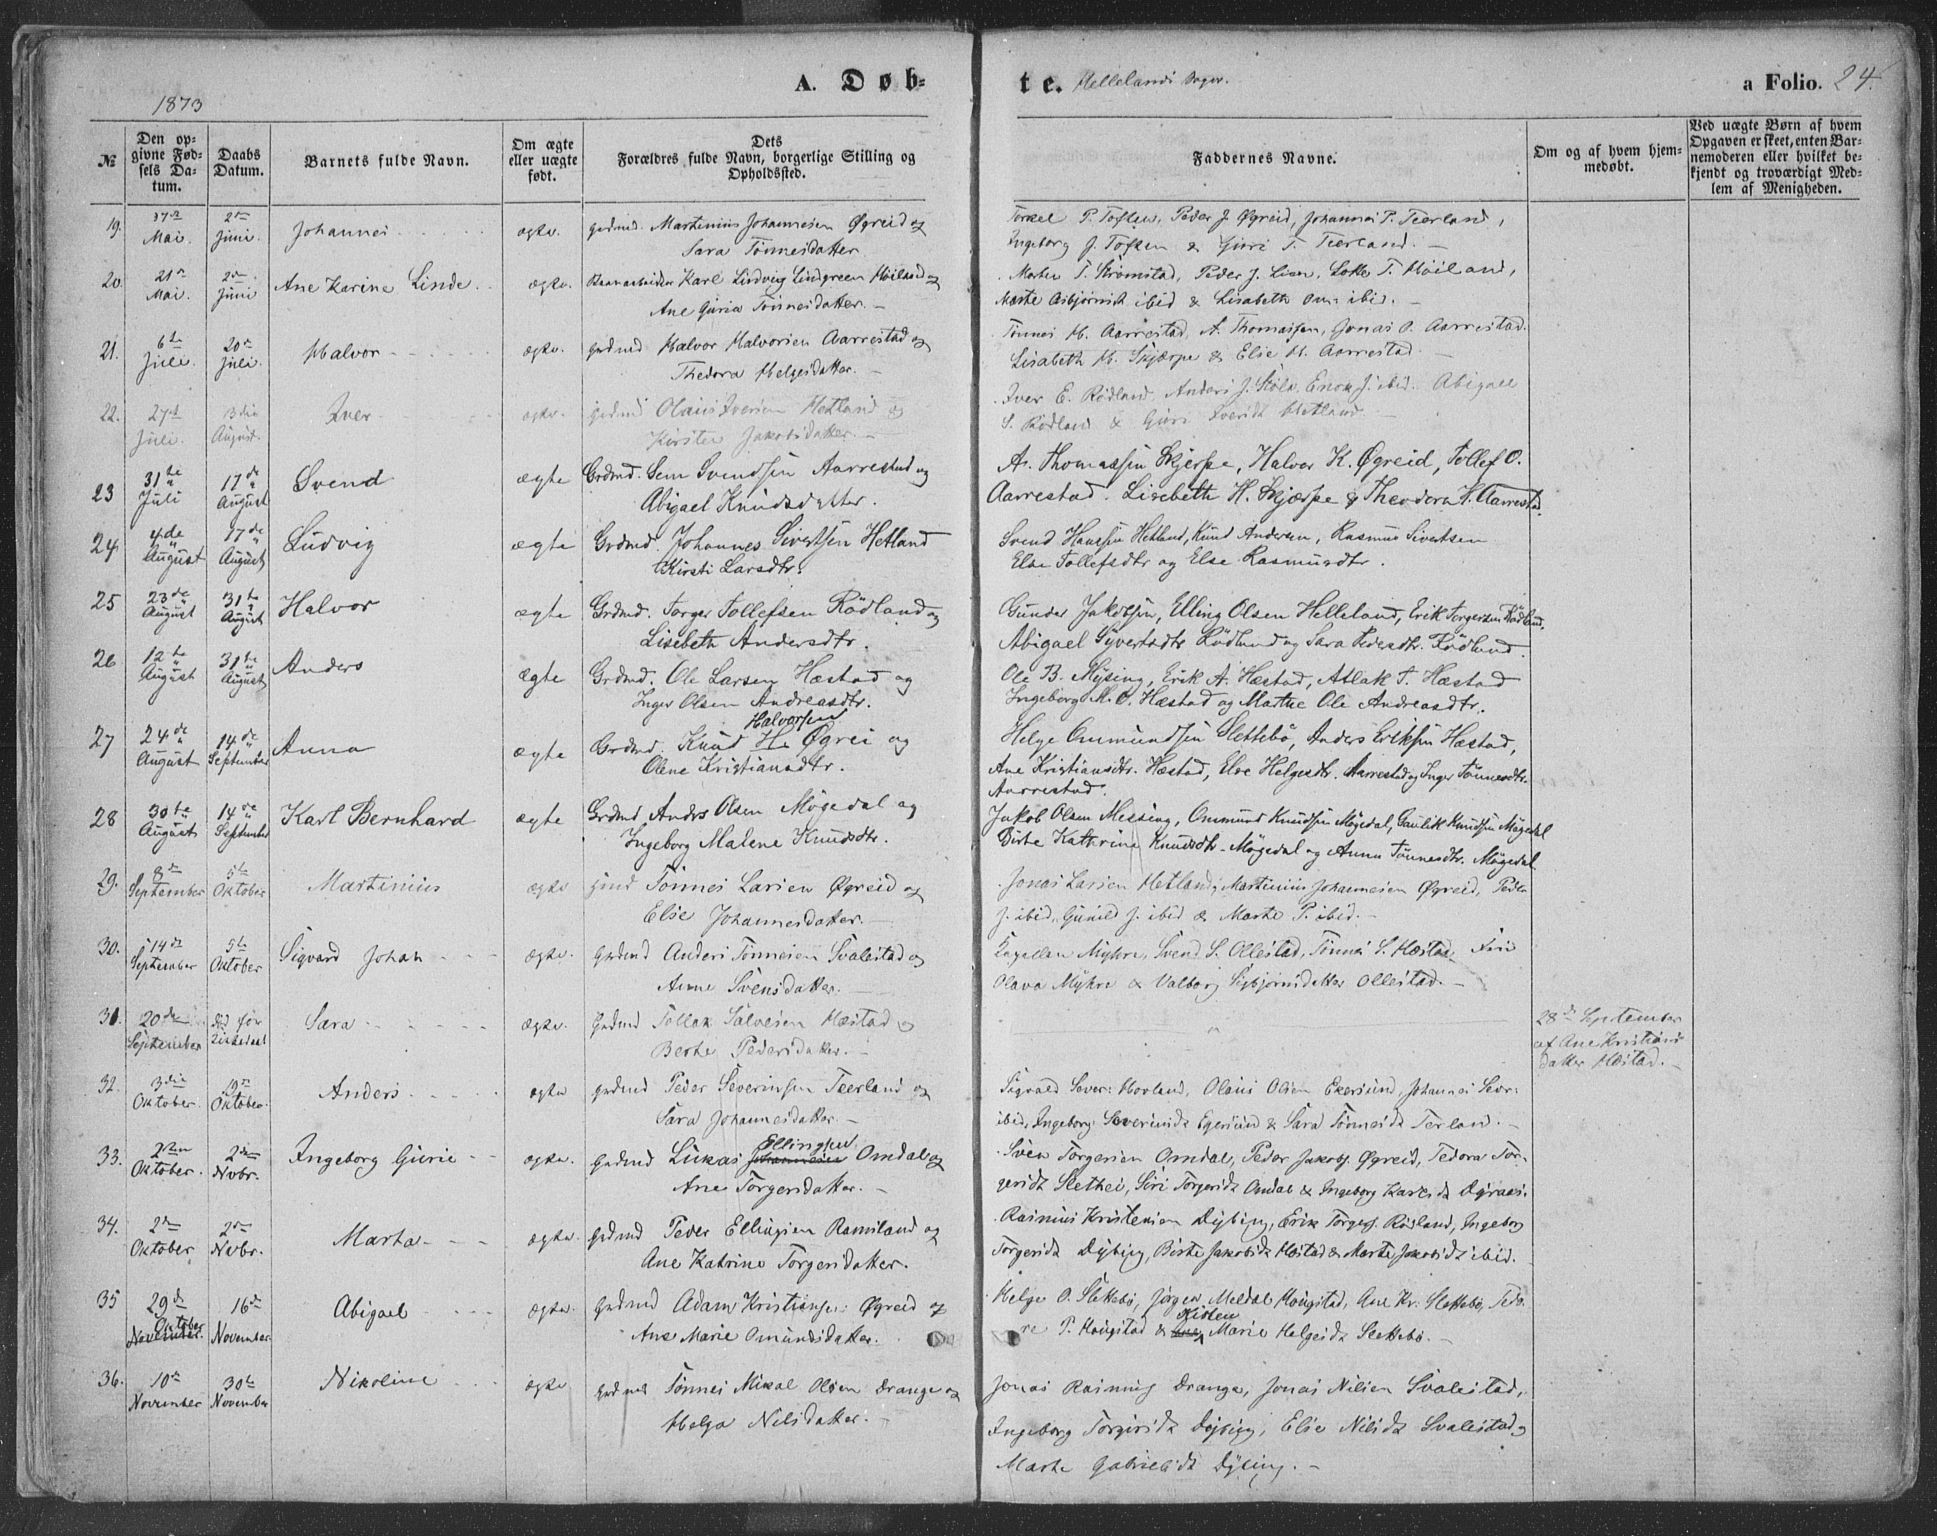 1873
A. Døb-
te. Hellelands Sogn.
a Folio. 24.
№
Den op-
givne Fød-
sels Da-
tum.
Daabs
Datum.
Barnets fulde Navn.
Om ægte
eller uægte
født.
Dets
Forældres fulde Navn, borgerlige Stilling og
Opholdssted.
Faddernes Navne.
Om og af hvem hjem-
medøbt.
Ved uægte Børn af hvem
Opgaven er skeet, enten Bar-
nemoderen eller hvilket be-
kjendt og troværdigt Med-
lem af Menigheden.
19. 17de Mai. 2den Juni. Johannes ægte. Grdmd. Martinius Johannesen Øgreid og
Sara Tønnesdatter
Torkel P. Tofken, Peder J. Øgreid, Johannes P. Teerland,
Ingeborg J. Tofken & Guri T. Teerland. —
20. 21de Mai. 2den Juni Ane Karine Linde ægte. Karl Lindvig Lindgreen Høiland og
Ane Guria Tønnesdatter. —
T. Strømstad, Peder J. Lien, Lotte T. Høiland,
Marte Asbjørnsdt ibid & Lisabeth ibid. —
21. 6te Juli. 20de Juli. Halvor ægte. Grdmd Halvor Halvorsen Aarrestad og
Thedora Helgesdatter. —
Tønnes H. Aarrestad, A. Thomassen, Jonas O. Aarrestad.
Lisabeth H. Skjærpe & Else H. Aarrestad. —
22. 27de Juli. 3die August. Iver ægte. Grdmd Olaus Iversen Hetland og
Kirsten Jakobsdatter. —
Iver E. Rødland, Anders J. Støle, Enok J. ibid. Abigael
S. Rødland & Guri Iversdt Hetland. —
23 31te Juli 17de August Svend ægte Grdmd. Sem Svendsen Aarrestad og
Abigael Knudsdatter.
A. Thomassen Skjerpe, Halvor K. Øgreid, Tollef O.
Aarrestad. Lisebeth H. Skjærpe & Theodora H. Aarrestad.
24 4de August 17de August Ludvig ægte Grdmd. Johannes Sivertsen Hetland
Kirsti Larsdtr.
Svend Hansen Hetland, Knud Andersen, Rasmus Sivertsen
Else Tollefsdtr og Else Rasmusdtr.
25 23de August 31te August Halvor ægte Grdmd. Torger Tollefsen Rødland og
Lisebeth Andersdtr.
Gunder Jakobsen, Elling Olsen Helleland, Erik Torgersen Rødland.
Abigael Syvertsdtr Rødland og Sara Pedersdtr. Rødland.
26 12te August 31te August Anders Ægte Grdmd. Ole Larsen Hæstad og
Inger Olsen Andreasdtr.
Ole B. Mysing, Erik A. Hæstad, Atlak T. Hæstad
Ingeborg M. O. Hæstad og Marthe Ole Andreasdtr.
27 24de August 14de September Anna ægte Grdmd. Knud H. Halvorsen Øgrei og
Olene Kristiansdtr.
Helge Ommundsen Slettebø, Anders Eriksen Hæstad,
Ane Kristiansdtr. Hæstad, Else Helgesdtr. Aarrestad og Inger Tønnesdtr.
Aarrestad.
28 30te August 14de September Karl Bernhard ægte Grdmd Anders Olsen Møgedal og
Ingeborg Malene Knudsdtr.
Jakob Olsen Messing, Ommund Knudsen Møgedal, Gaulik Knudsen Møgedal
Birte Kathrine Knudsdtr. Møgedal og Anna Tønnesdtr. Møgedal
29. 8de September 5te Oktober Martinius ægte Grmd Tønnes Larsen Øgreid og
Else Johannesdatter. —
Jonas Larsen Hetland, Martinius Johannesen Øgreid, Peder
J. ibid, Gunild J. ibid & Marte P. ibid. —
30. 14de September 5te Oktober Sigvard Johan ægte. Grdmd Anders Tønnesen Svalestad og
Anne Svensdatter. —
Kapellan Myhre, Svend S. Ollestad, Tønnes S. Hæstad, Fru
Olava Myhre & Valborg Sigbjørnsdatter Ollestad. —
31. 20de September Sara ægte. Grdmd Tollak Salvesen Hæstad og
Berte Pedersdatter. —
28de September
af Ane Kristians
datter Hæstad. —
32. 3die Oktober. 19de Oktober. Anders ægte Grdmd Peder Severinsen Teerland og
Sara Johannesdatter. —
Sigvald Sever: Hovland, Olaus Olsen Ekersund, Johannes Sevr:
ibid, Ingeborg Severinsdt Egersund & Sara Tønnesdt Terland. —
33. Oktober. 2den Novbr. Ingeborg Gurie ægte. Grdmd Lukas Johannesen Ellingsen Omdal og
Ane Torgersdatter. —
Sven Torgersen Omdal, Peder Jakobs. Øgreid, Tedora Tor-
gersdt Slethei, Siri Torgersdt Omdal & Ingeborg Larsdt Øgreid.
34. 2den Oktober 2den Novbr. Marta ægte. Grdmd Peder Ellingsen Ramsland og
Ane Katrine Torgersdatter.
Rasmus Kristensen Dybing, Erik Torges. Røsland, Ingeborg
Torgersdt Dybing, Birte Jakobsdt Hæstad & Marte Jakobsdt ibid.
35 29de November. Oktober 16de November Abigael ægte. Grdmd Adam Kristians: Øgreid og
Ane Marie Omundsdatter.
Helge O. Slettebø, Jørgen Meldal Hougstad, Ane Kr. Slettebø, Tedo-
re P. Hougstad & Ane Kisten Marie Helgesdt Slettebø. —
36. 10de November 30te November Nikoline ægte Grdmd Tønnes Mikal Olsen Drange og
Helga Nilsdatter. —
Jonas Rasmus Drange, Jonas Nilsen Svalestad,
Ingeborg Torgersdt Dybing, Else Nilsdt Svalestad,
Marte Gabrielsdt Dybing. —